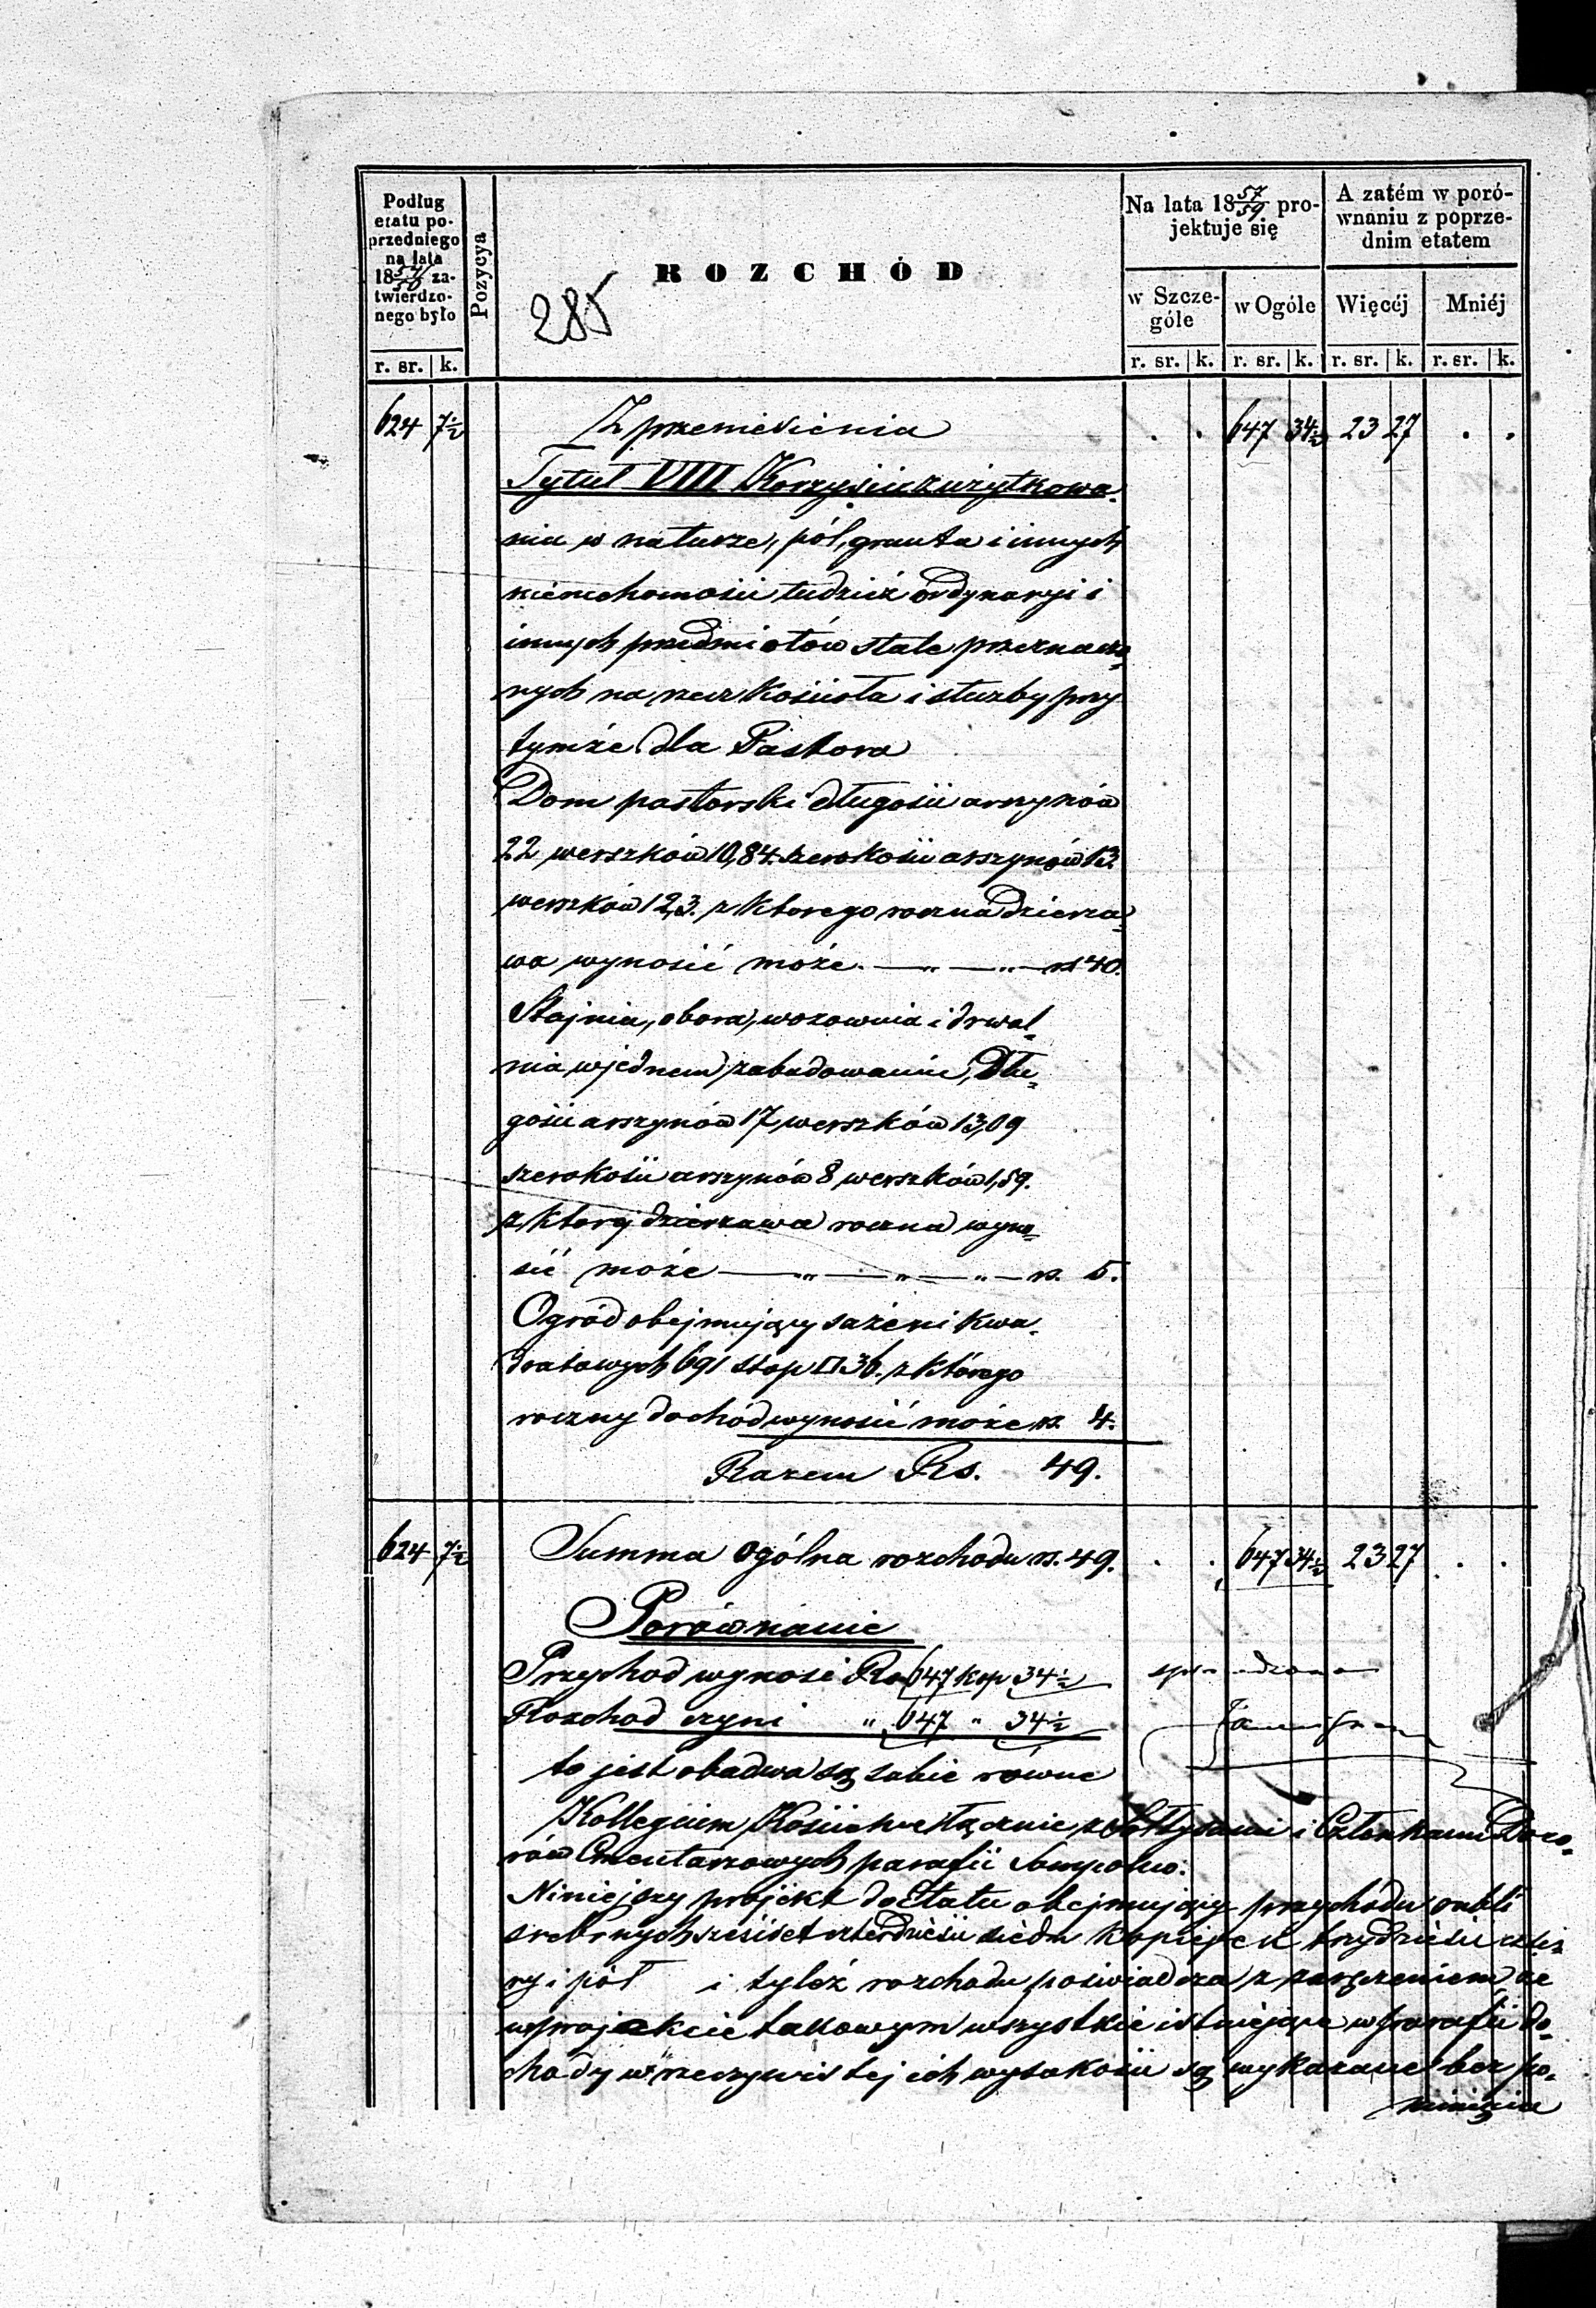 Podług
etatu po-
przedniego
na lata
18 54/56 za-
twierdzo-
nego było
r. sr. k.
Pozycya
ROZCHÓD
285
Na lata 18 57/59 pro-
jektuje się
w Szcze-
góle
w Ogóle
r. sr. k. r. sr. k.
A zatém w poró-
wnaniu z poprze-
dnim etatem
Więcéj Mniéj
r. sr. k. r. sr. k.
624 7½ Z przeniesienia . . 647 34½ 23 27 . .
Tytuł VIII Korzyści z użytkowa-
nia w naturze, pól, gruntu i innych
nieruchomości tudzież ordynaryi i
innych przedmiotów stale przeznaczo-
nych na rzecz Kościoła i służby przy
tymże dla Pastora
Dom pastorski długości arszynów
22 werszków 10,84. szerokości arszynów 13.
werszków 12,3. z którego roczna dzierża-
wa wynosić może. — " — " — rs 40.
Stajnia, obora, wozownia i drwal-
nia w jednem zabudowaniu, dłu-
gości arszynów 17, werszków 13,09
szerokości arszynów 8 werszków 1,59.
z której dzierzawa roczna wyno-
sić może — " — " — " — rs. 5.
Ogród obejmujący sażeni kwa-
dratowych 691 stop □ 36. z którego
roczny dochód wynosić może rs. 4.
Razem Rs. 49.
624 7½ Summa ogólna rozchodu rs. 49. . . 647 34½ 23 27 . .
Porównanie
Przychod wynosi Rs 647 kop 34½
Rozchod czyni " 647 " 34½
to jest obadwa są sobie równe
Kollegium Kościelne łącznie z Sołtysami i Członkami Dozo-
rów Cmentarzowych parafii Sompolno.
Niniejszy projekt do Etatu obejmujący przychodu rubli
srebrnych sześćset czterdzieści siedm kopiejek trzydzieści czte-
ry i pół i tyleż rozchodu poświadcza z zaręczeniem że
w projekcie takowym wszystkie istniejące w parafii do-
chody w rzeczywistej ich wysokości są wykazane bez po-
minięcia